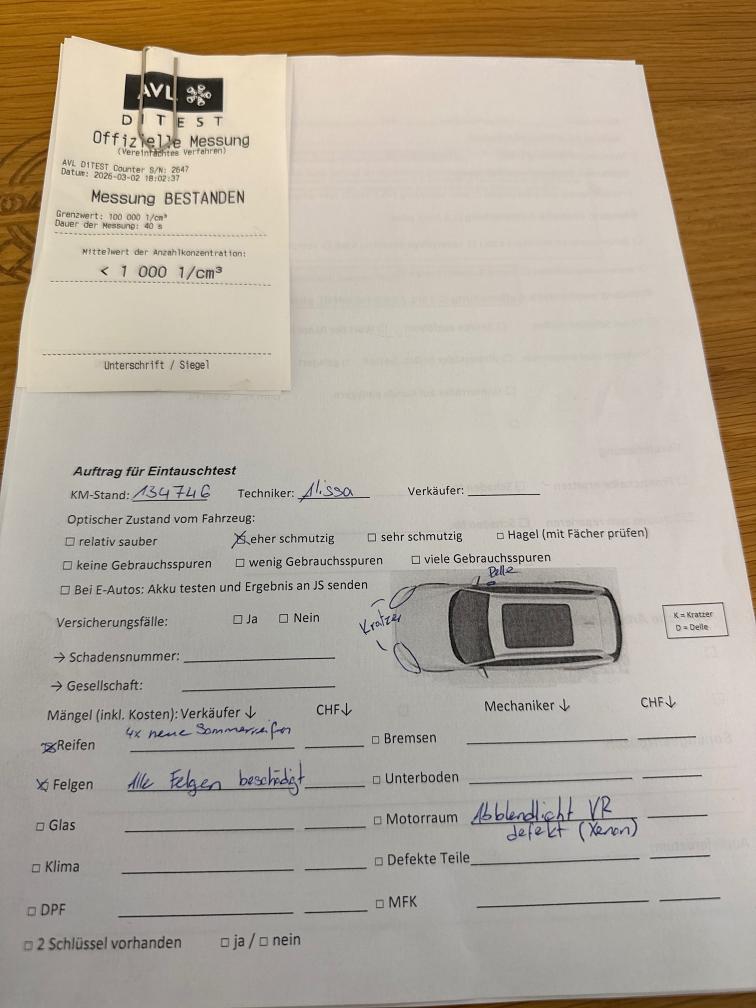 AVL
DITEST
Offizielle Messung
(Vereinfachtes Verfahren)
AVL DITEST Counter S/N: 2647
Datum: 2026-03-02 18:02:37
Messung BESTANDEN
Grenzwert: 100 000 1/cm³
Dauer der Messung: 40 s
Mittelwert der Anzahlkonzentration:
< 1 000 1/cm³
Unterschrift / Siegel
Auftrag für Eintauschtest
KM-Stand: 134746 Techniker: Alissa Verkäufer:
Optischer Zustand vom Fahrzeug:
☐ relativ sauber ☒ eher schmutzig ☐ sehr schmutzig ☐ Hagel (mit Fächer prüfen)
☐ keine Gebrauchsspuren ☐ wenig Gebrauchsspuren ☐ viele Gebrauchsspuren
☐ Bei E-Autos: Akku testen und Ergebnis an JS senden
Delle
Kratzer
K = Kratzer
D = Delle
Versicherungsfälle: ☐ Ja ☐ Nein
→ Schadensnummer:
→ Gesellschaft:
Mängel (inkl. Kosten): Verkäufer ↓ CHF↓ Mechaniker ↓ CHF↓
☒ Reifen 4x neue Sommerreifen ☐ Bremsen
☒ Felgen Alle Felgen beschädigt ☐ Unterboden
☐ Glas ☐ Motorraum Abblendlicht VR
defekt (Xenon)
☐ Klima ☐ Defekte Teile
☐ DPF ☐ MFK
☐ 2 Schlüssel vorhanden ☐ ja / ☐ nein